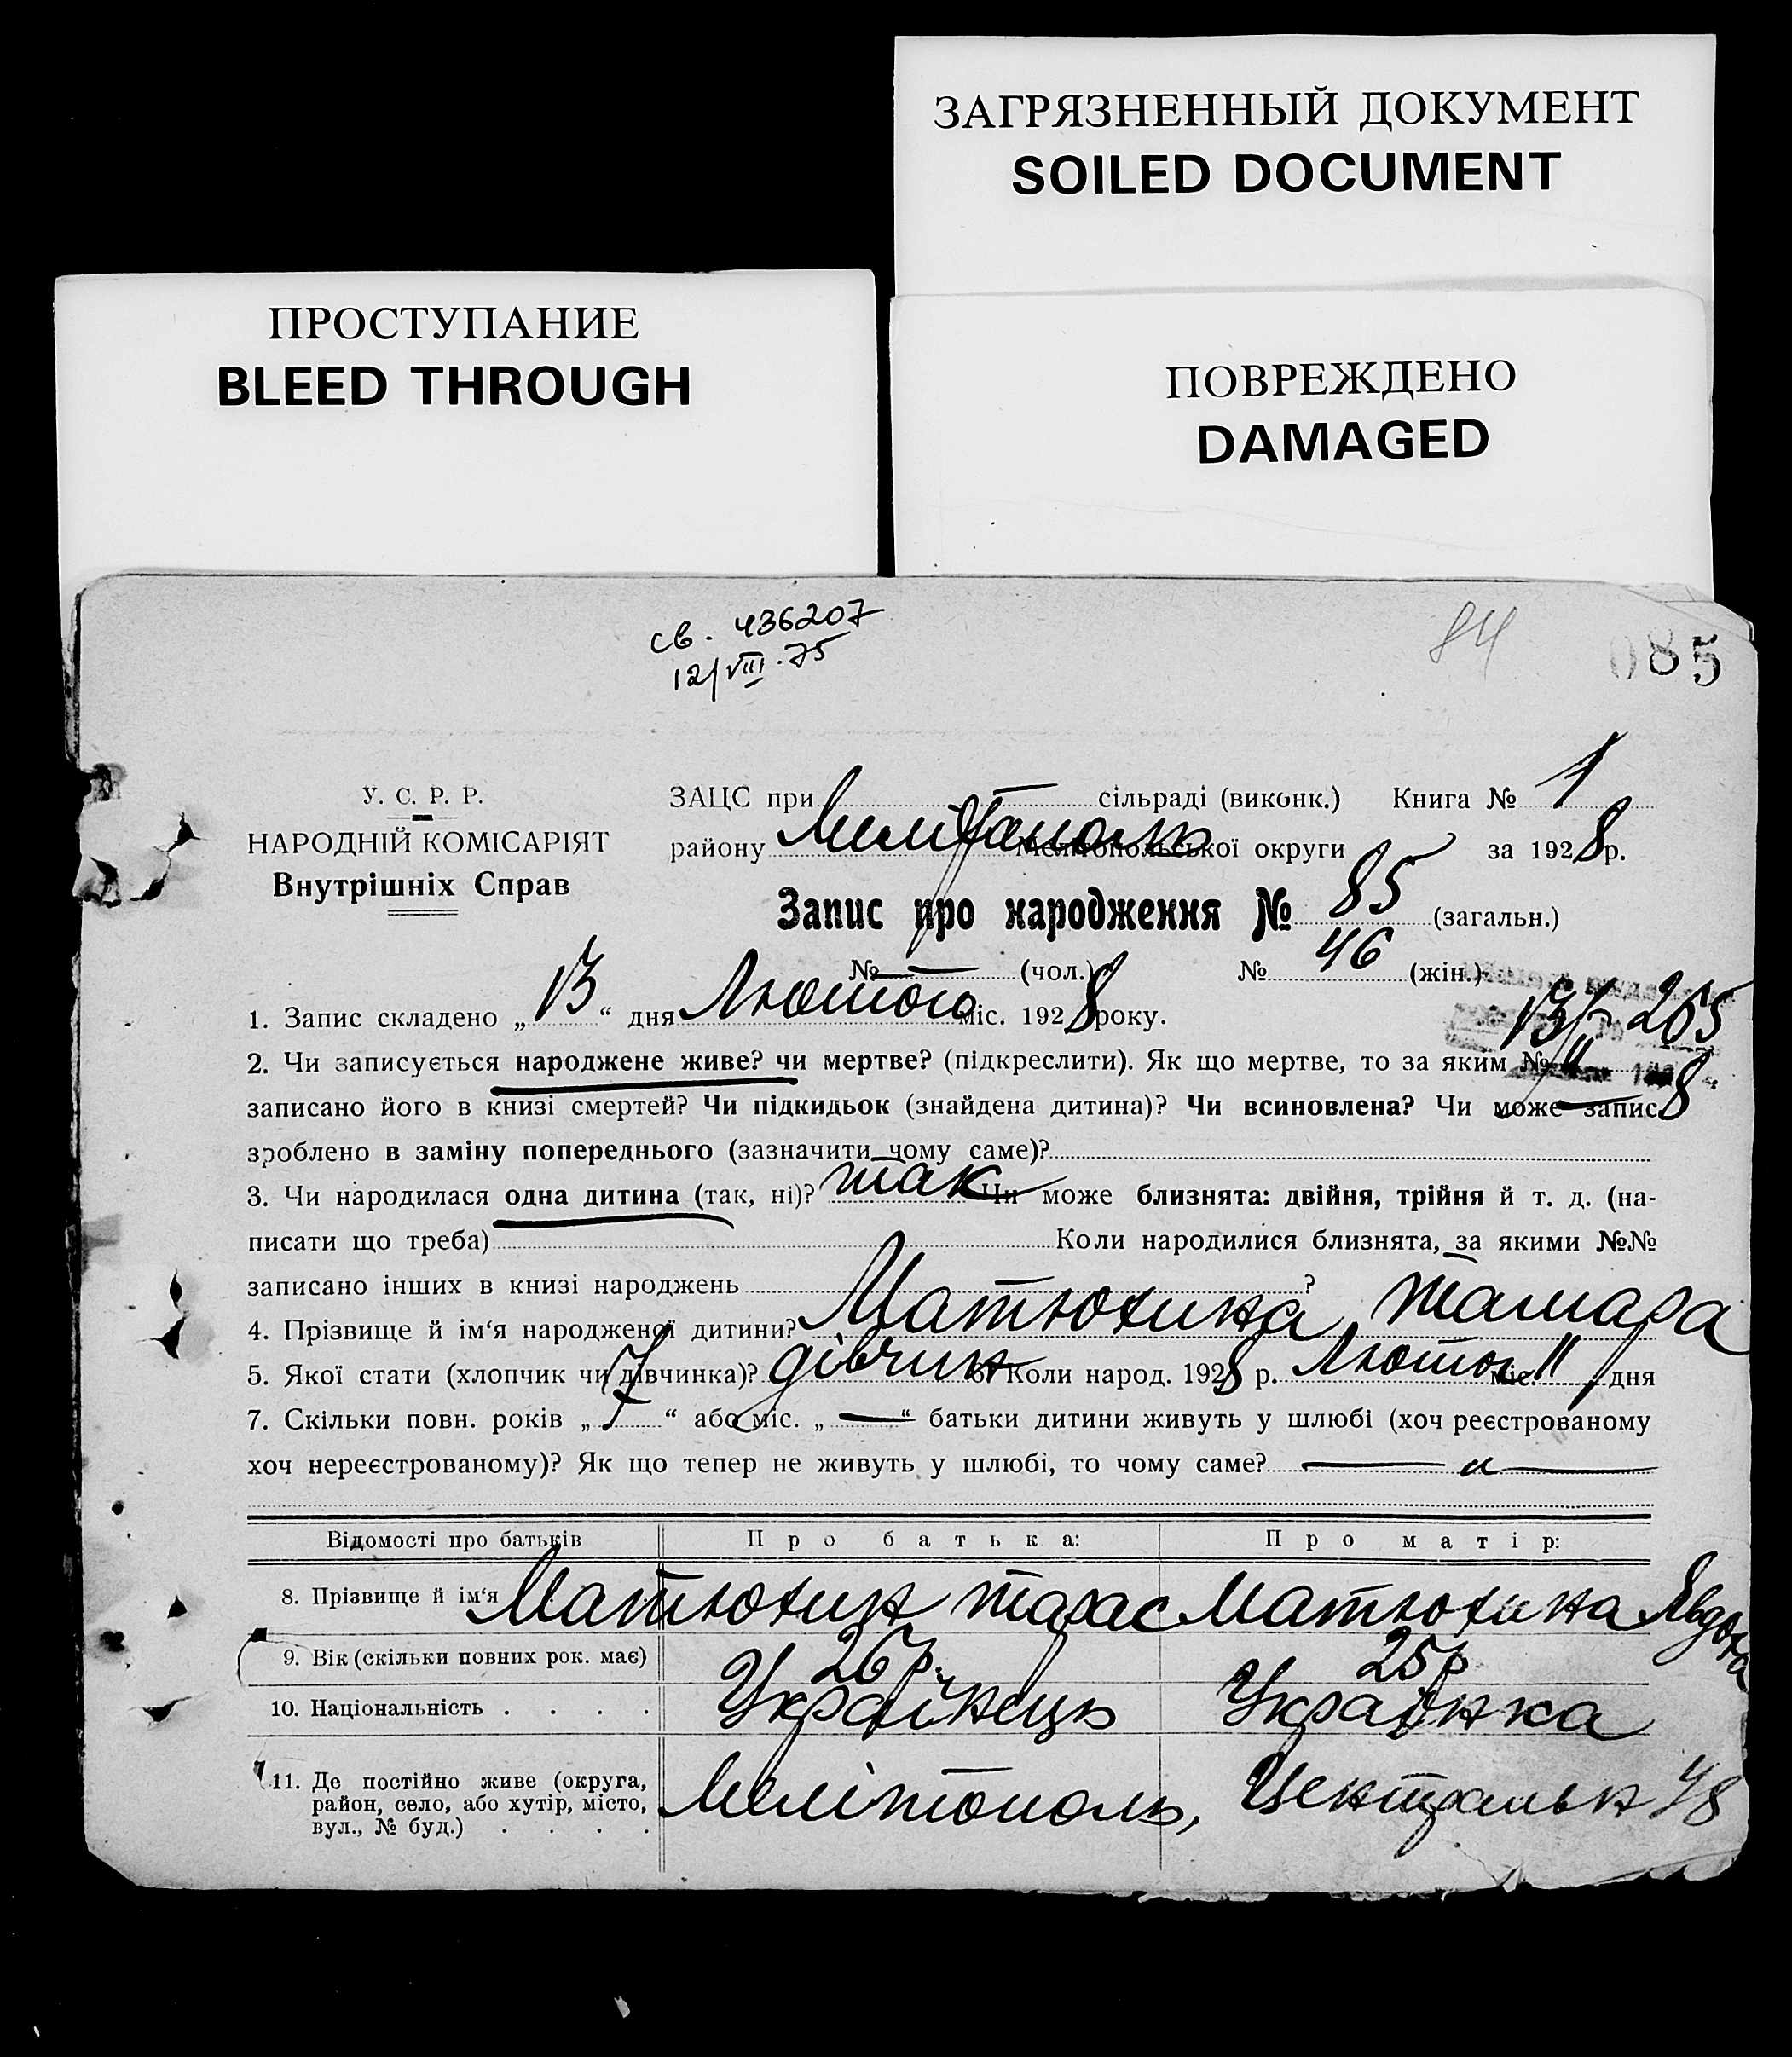 ЗАГРЯЗНЕННЫЙ ДОКУМЕНТ
SOILED DOCUMENT
ПРОСТУПАНИЕ
BLEED THROUGH
ПОВРЕЖДЕНО
DAMAGED
св. 436207
12/VIII.75
84
085
У. С. Р. Р.
НАРОДНІЙ КОМІСАРІЯТ
Внутрішніх Справ
ЗАЦС при сільраді (виконк.) Книга № 1
району Мелітополь Мелітопольської округи за 1928 р.
Запис про народження № 85 (загальн.)
№ — (чол.) № 46 (жін.)
1. Запис складено „13“ дня Лютого міс. 1928 року.
13/II 265
8
2. Чи записується народжене живе? чи мертве? (підкреслити). Як що мертве, то за яким №
записано його в книзі смертей? Чи підкидьок (знайдена дитина)? Чи всиновлена? Чи може запис
зроблено в заміну попереднього (зазначити чому саме)?
3. Чи народилася одна дитина (так, ні)? так Чи може близнята: двійня, трійня й т. д. (на-
писати що треба) Коли народилися близнята, за якими №№
записано інших в книзі народжень ?
4. Прізвище й ім‘я народженої дитини? Матюхина Тамара
5. Якої стати (хлопчик чи дівчинка)? дівчин 6. Коли народ. 1928 р. Лютог міс. 11 дня
7. Скільки повн. років „7“ або міс. „—“ батьки дитини живуть у шлюбі (хоч реєстрованому
хоч нереєстрованому)? Як що тепер не живуть у шлюбі, то чому саме? — „ —
Відомості про батьків Про батька: Про матір:
8. Прізвище й ім‘я Матюхин Тарас Матюхина Явдоха
9. Вік (скільки повних рок. має) 26 р. 25 р
10. Національність . . . . Українець Українка
11. Де постійно живе (округа,
район, село, або хутір, місто,
вул., № буд.) . . . .
Мелітополь, Центральн 48